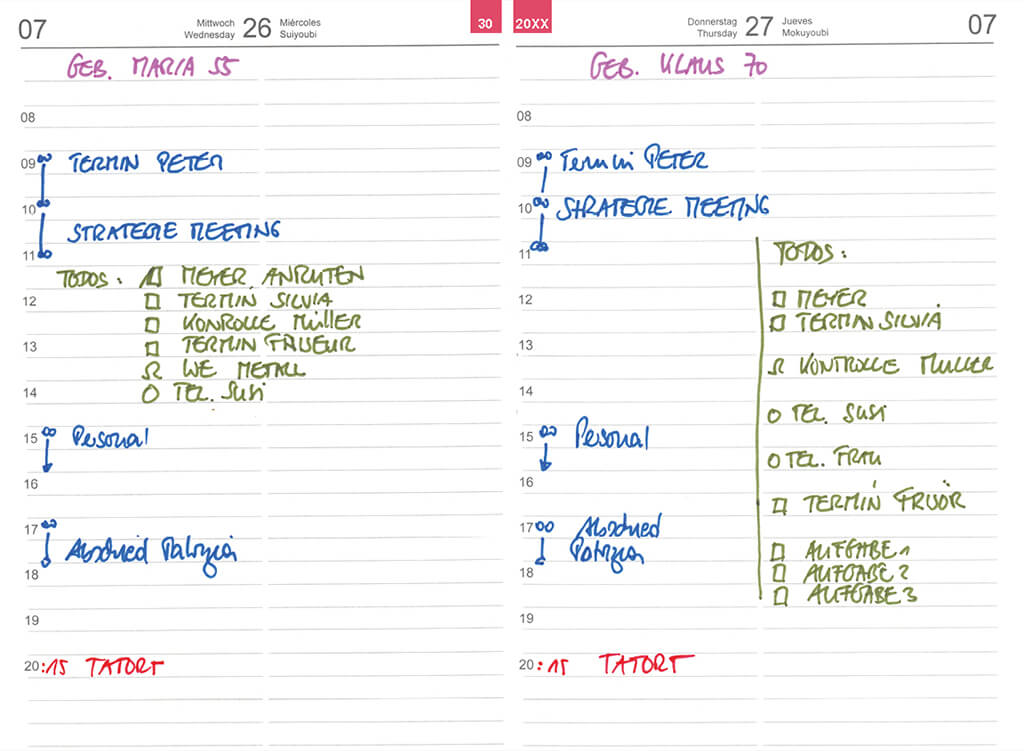 07
Mittwoch 26 Miércoles
Wednesday Suiyoubi
30
GEB. MARIA 55
08
09 00 TERMIN PETER
10 00
STRATEGIE MEETING
11 00
TODOS: MEYER ANRUFEN
12 TERMIN SILVIA
KONROLLE MÜLLER
13 TERMIN FRISEUR
WE METALL
14 TEL. SUSI
15 00 Personal
16
17 00
Abschied Patrizia
18
19
20:15 TATORT
20XX
Donnerstag 27 Jueves
Thursday Mokuyoubi
07
GEB. KLAUS 70
08
09 00 Termin PETER
10 00 STRATEGIE MEETING
11 00
TODOS:
12 MEYER
TERMIN SILVIA
13
KONTROLLE MULLER
14
TEL. SUSI
15 00 Personal
TEL. FRAU
16
TERMIN
17 00 Abschied
Patrizia
AUFGABE 1
18 AUFGABE 2
AUFGABE 3
19
20:15 TATORT